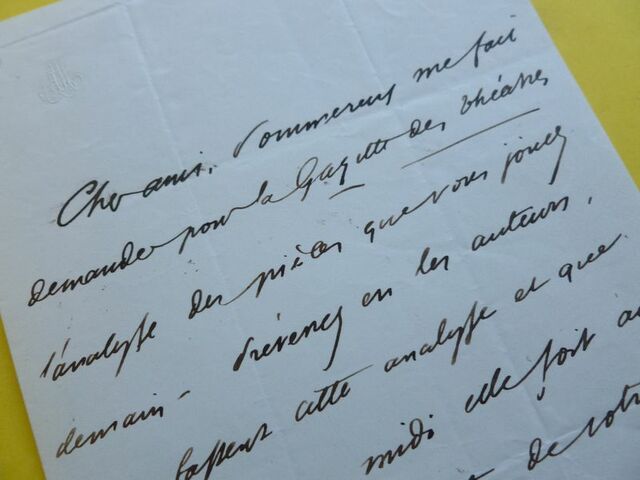 Cher ami, Pommereux me fait
demander pour la Gazette des théâtres
l'analyse des pièces que vous jouez
demain - Prévenez en les auteurs,
fassent cette analyse et que
midi elle soit au
de votre